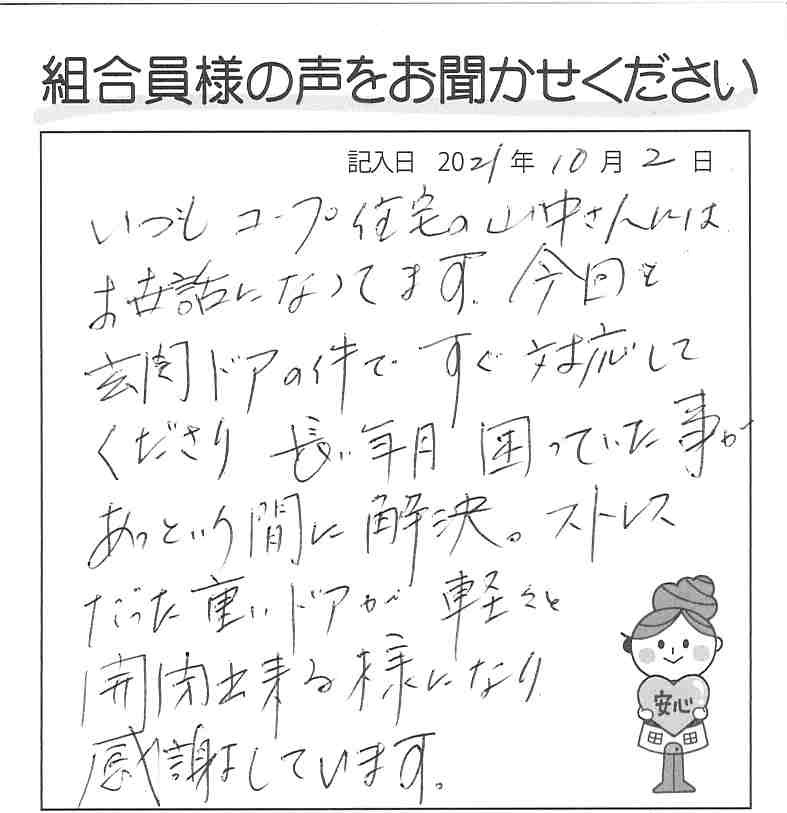 組合員様の声をお聞かせください
記入日 2021年10月2日
いつも コープ住宅の山中さんには
お世話になってます。今回も
玄関ドアの件で すぐ対応して
くださり 長い年月 困っていた事が
あっという間に解決。ストレス
だった重いドアが 軽々と
開閉出来る様になり
感謝しています。
安心